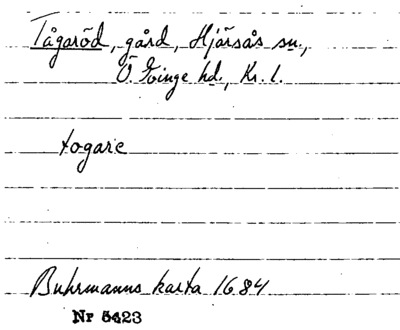 Tågaröd, gård, Hjärsås sn.,
Ö. Göinge hd., Kr. l.
togare
Buhrmanns karta 1684
Nr 5423